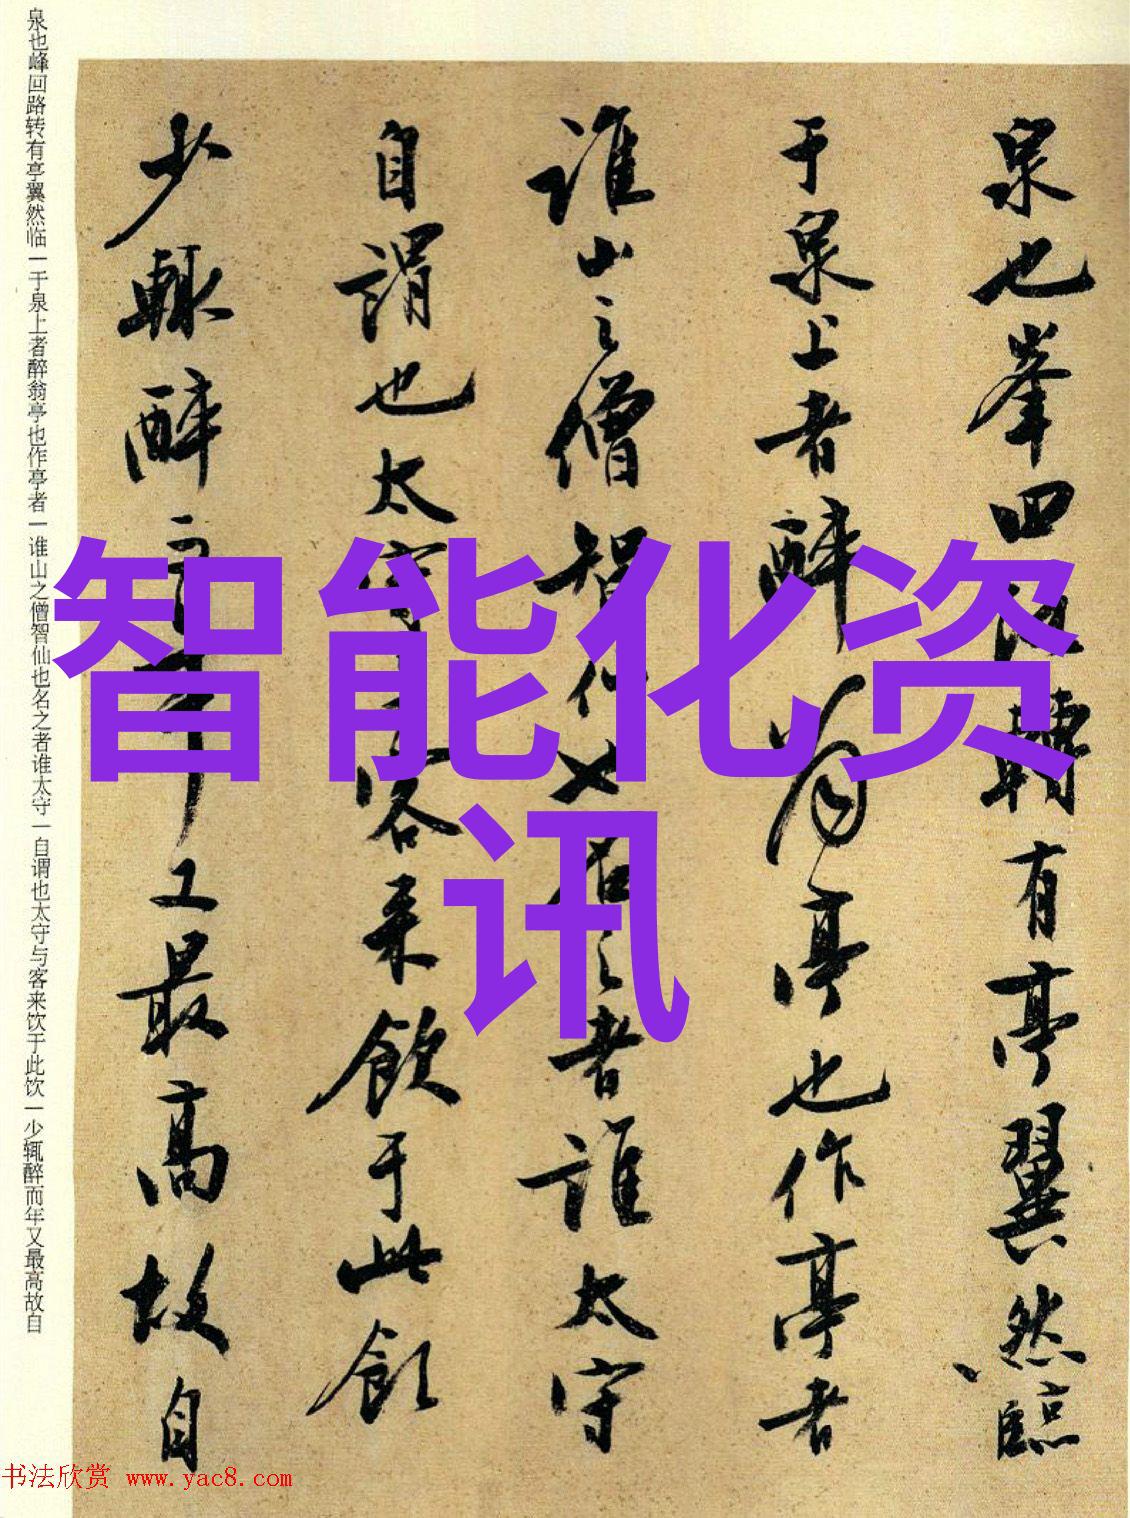 泉也峯回路轉有亭翼然臨
于泉上者醉翁亭也作亭者
誰山之僧智仙也名之者誰太守
自謂也太守與客来飲于此飲
少輒醉而年又最高故自
泉也峰回路转有亭翼然临一于泉上者醉翁亭也作亭者一谁山之僧智仙也名之者谁太守一自谓也太守与客来饮于此饮一少辄醉而年又最高故自
智能化资
讯
书法欣赏 www.yac8.com